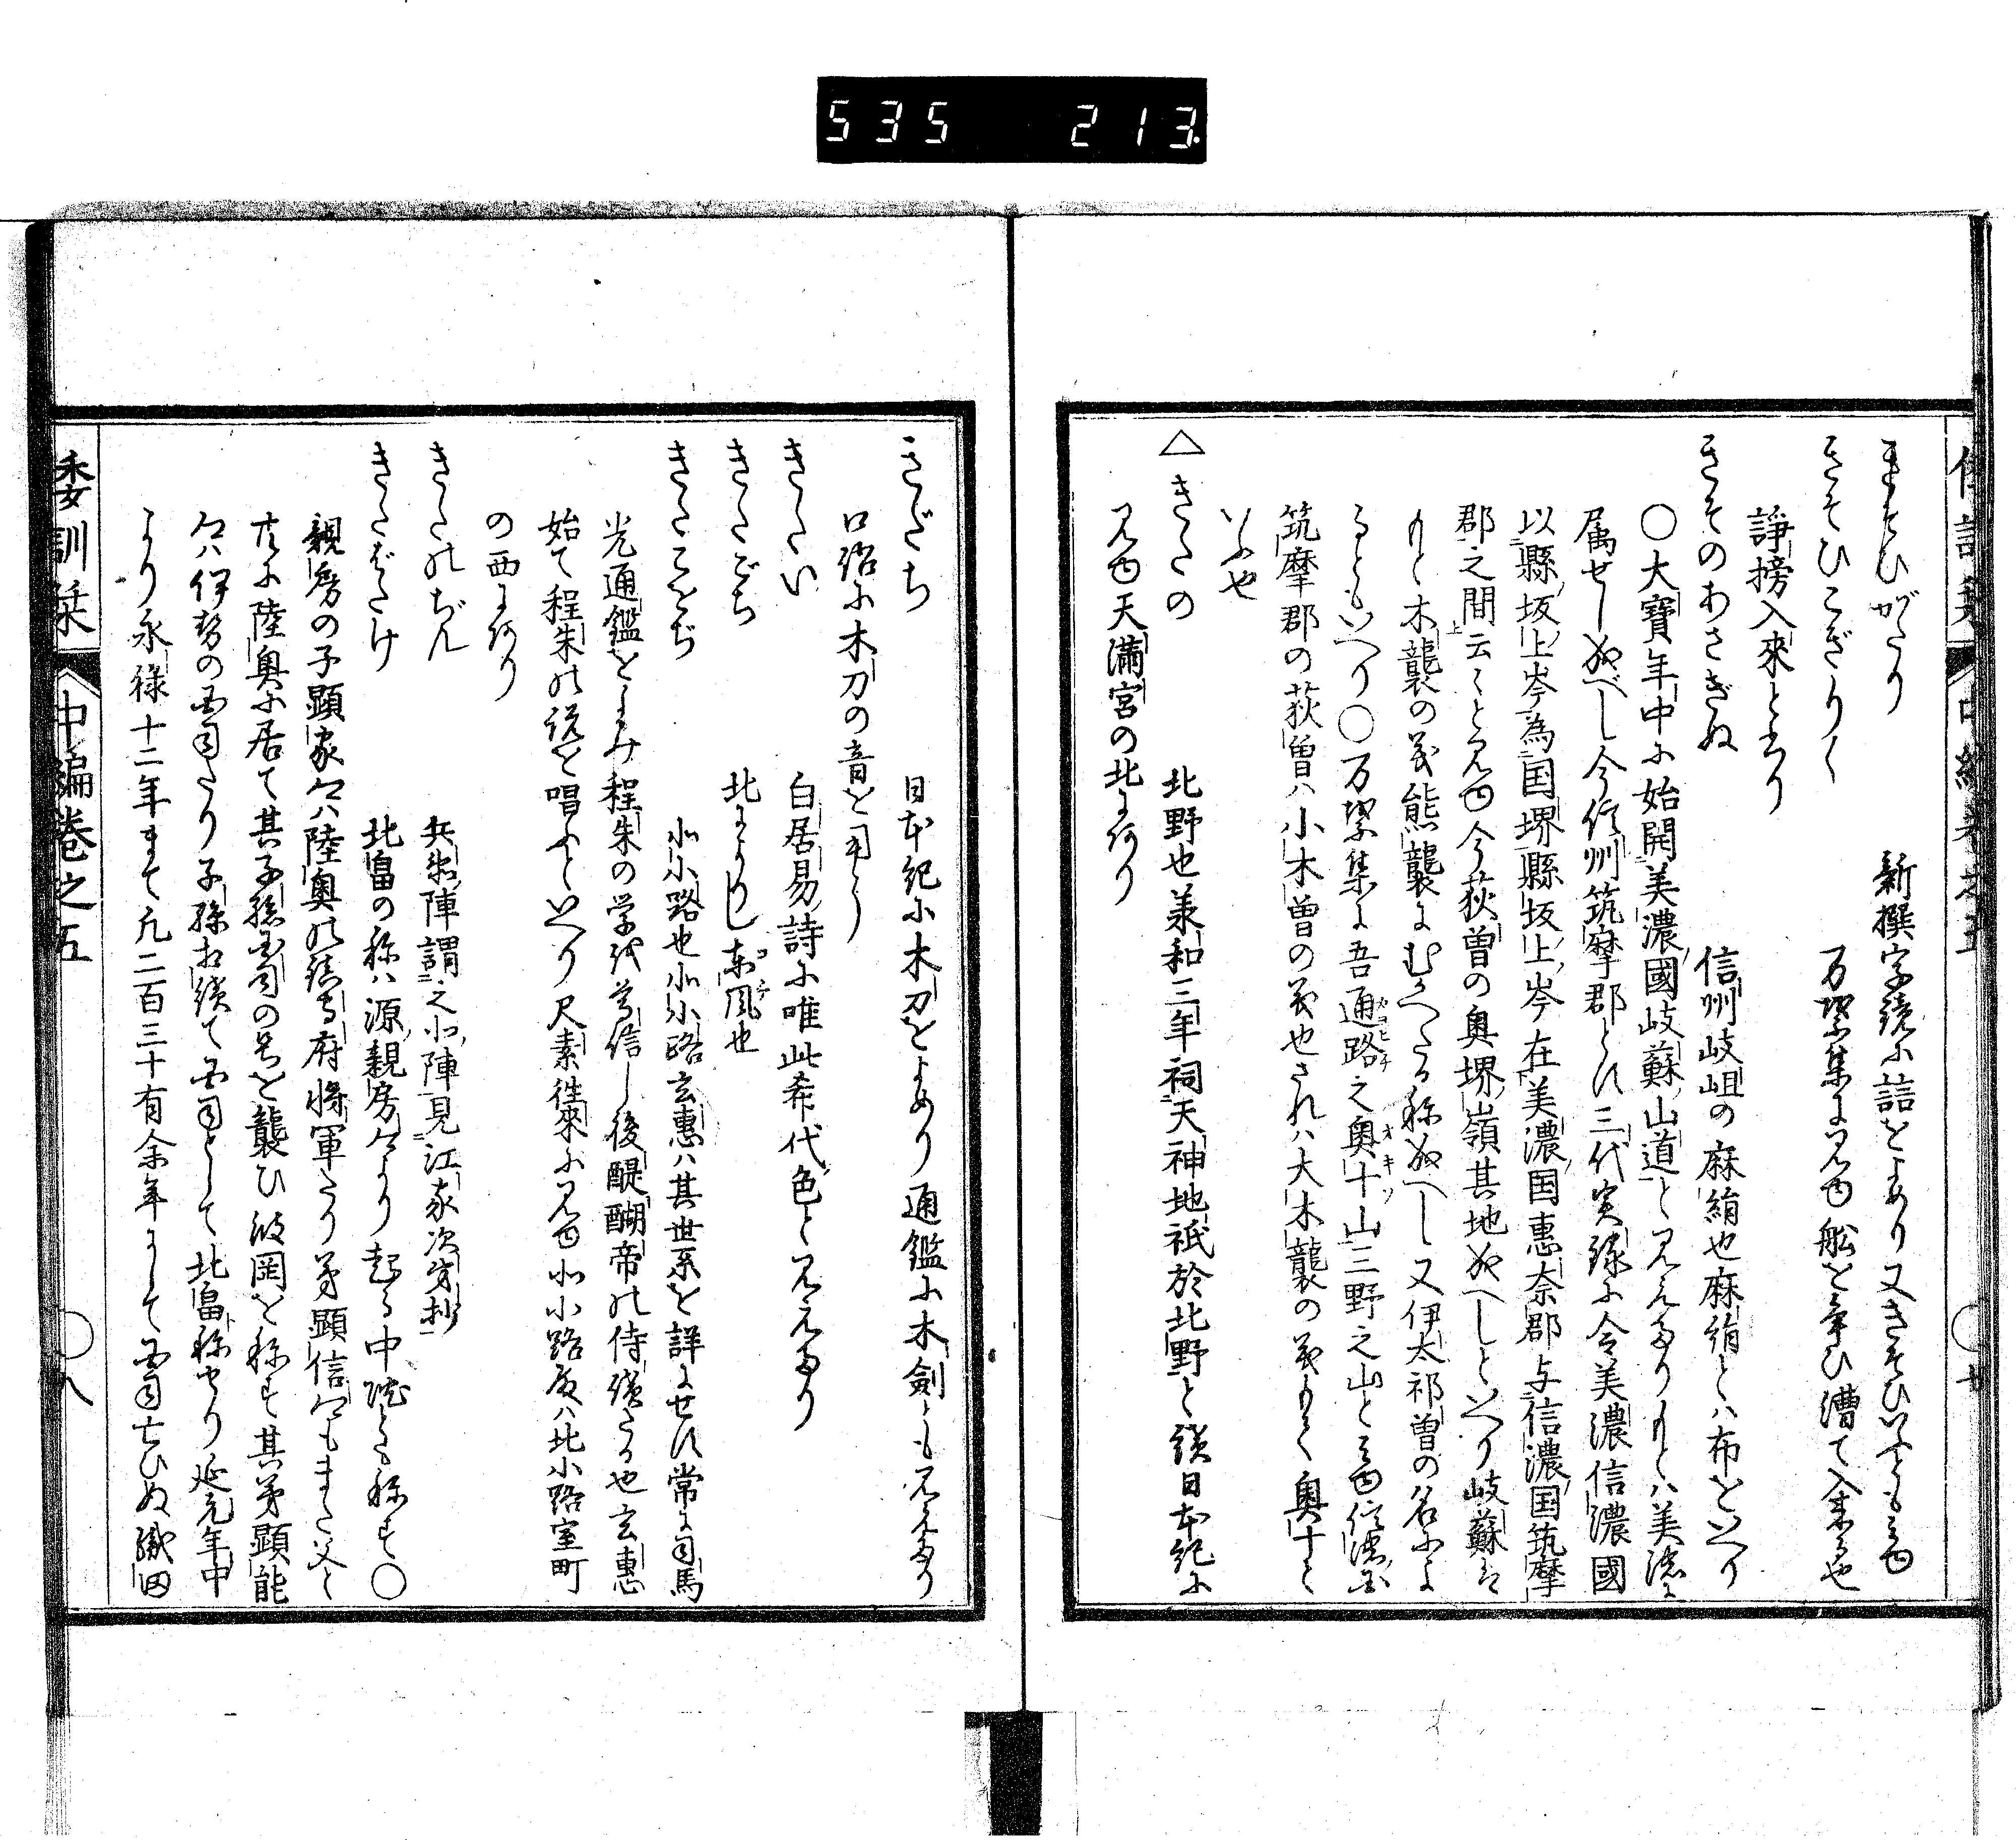 535 213
きそひがたり 新撰字鏡に誥をよめり又きそひいふともみゆ
きそひこぎりく 万葉集に見ゆ船を争ひ漕て入来る也
諍搒入來と書り
きそのあさぎぬ 信州岐岨の麻絹也麻絹とハ布をいへり
○大寳年中に始開美濃國岐蘇山道と見えたりもとハ美濃に
属せしなべし今信州筑摩郡とす三代実録に令美濃信濃國
以縣坂上岑為国堺縣坂上岑在美濃国惠奈郡与信濃国筑摩
郡之間云々と見ゆ今荻曽の奥堺嶺其地なへしといへり岐蘇は
もと木襲の義熊襲にむかへたる称なへし又伊太祁曽の名によ
るともいへり○万葉集に吾通路之奥十山三野之山とみゆ信濃国
筑摩郡の荻曽ハ小木曽の義也されハ大木襲の義もて奥十と
いふや
△きたの 北野也承和三年祠天神地祇於北野と續日本紀に
見ゆ天滿宮の北に有り
きだち 日本紀に木刀をよめり通鑑に木劍とも見えたり
口語に木刀の音を用う
きたい 白居易詩に唯此希代色と見えたり
きたごち 北によりし東風也
きたこをぢ 北小路也北小路玄惠ハ其世系を詳にせす常に司馬
光通鑑をよみ程朱の学を尊信し後醍醐帝の侍讀たる也玄惠
始て程朱の説を唱ふといへり尺素徃來に見ゆ北小路殿ハ北小路室町
の西に有り
きたのぢん 兵衛陣謂之北陣見江家次第抄
きたばたけ 北畠の称ハ源親房卿より起る中院とも称す○
親房の子顯家卿ハ陸奥の鎮守府将軍たり弟顯信卿もまた父と
共に陸奥に居て其子孫国司の号を襲ひ波岡を称す其弟顯能
卿ハ伊勢の国司たり子孫相續て国司として北畠称せり延元年中
より永禄十二年まて凡二百三十有余年にして国司亡ひぬ織田
倭訓栞 中編巻之五 ○八